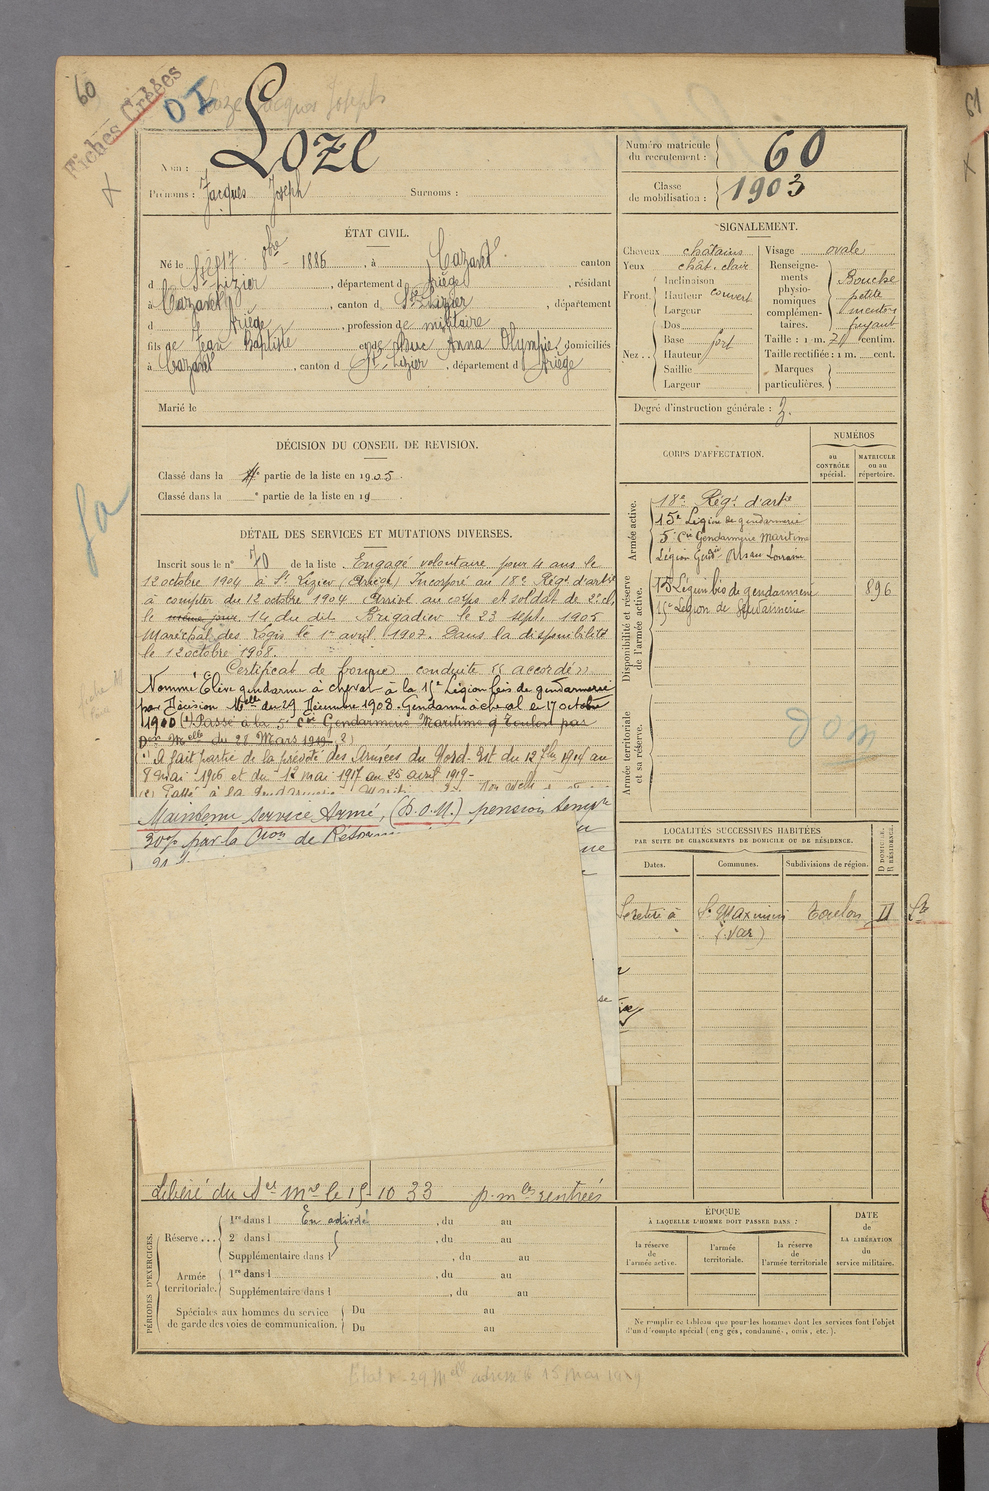 60
Fiches Créées
DI
Loze Jacques Joseph
Nom : Loze
Prénoms : Jacques Joseph Surnoms :
Numéro matricule du recrutement : 60
Classe de mobilisation : 1903
ÉTAT CIVIL.
Né le 17 8bre 1886, à Cazaret canton
d St Lizier, département d Ariège, résidant
à Cazaret, canton d St Lizier, département
d Ariège, profession de militaire
fils de Jean Baptiste et de Anna Olympie, domiciliés
à Cazaret, canton d St Lizier, département d Ariège
Marié le
SIGNALEMENT.
Cheveux châtains
Yeux chât. clair
Front
Inclinaison
Hauteur couvert
Largeur
Nez
Dos
Base fort
Hauteur
Saillie
Largeur
Visage ovale
Renseignements physionomiques complémentaires.
Bouche
petite
menton
fuyant
Taille : 1 m. 71 centim.
Taille rectifiée : 1 m. cent.
Marques particulières.
Degré d'instruction générale : 3.
DÉCISION DU CONSEIL DE REVISION.
Classé dans la partie de la liste en 1905.
Classé dans la e partie de la liste en 19
DÉTAIL DES SERVICES ET MUTATIONS DIVERSES.
Inscrit sous le n° 70 de la liste. Engagé volontaire pour 4 ans le
12 octobre 1904 à St Lizier (Ariège) Incorporé au 18e Régt d'artie
à compter du 12 octobre 1904 Arrivé au corps et soldat de 2e cl.
le même jour 14 du dit Brigadier le 23 sept. 1905
Maréchal des Logis le 1er avril 1907. Dans la disponibilité
le 12 octobre 1908.
Certificat de bonne conduite « accordé »
Nommé Elève gendarme à cheval à la 15e Légion bis de gendarmerie
par Décision Melle du 29 Décembre 1908. Gendarme à cheval le 17 octobre
1900 (1) Passé à la 5e Cie Gendarmerie Maritime à Toulon par
Don Melle du 28 Mars 1919. 2)
(1) A fait partie de la prévôté des Armées du Nord-Est du 12 7bre 1914 au
8 mai 1916 et du 12 mai 1917 au 25 avril 1919-
(2) Passé à la Gendarmerie
Maintenu service Armé, (D.O.M.) pension tempre
30% par la Cion de Réforme
CORPS D'AFFECTATION.
NUMÉROS
au CONTRÔLE spécial.
MATRICULE ou au répertoire.
Armée active.
18e Régt d'artie
15e Légion de gendarmerie
5e Cie Gendarmerie Maritime
Légion Gendie Alsace Lorraine
Disponibilité et réserve de l'armée active.
15e Légion bis de gendarmerie 896
15e Légion de Gendarmerie
Armée territoriale et sa réserve.
DOM
LOCALITÉS SUCCESSIVES HABITÉES
PAR SUITE DE CHANGEMENTS DE DOMICILE OU DE RÉSIDENCE.
Dates.
Communes.
Subdivisions de région.
D DOMICILE. R RÉSIDENCE.
Se retire à St Maximin Toulon
(Var)
Libéré du Sce Mre le 15-10 33 p. mles rentrées
PÉRIODES D'EXERCICES.
Réserve
1re dans l En activité, du au
2e dans l , du au
Supplémentaire dans l , du au
Armée territoriale.
1re dans l , du au
Supplémentaire dans l , du au
Spéciales aux hommes du service de garde des voies de communication.
Du au
Du au
ÉPOQUE
À LAQUELLE L'HOMME DOIT PASSER DANS :
la réserve de l'armée active.
l'armée territoriale.
la réserve de l'armée territoriale
DATE de LA LIBÉRATION du service militaire.
Ne remplir ce tableau que pour les hommes dont les services font l'objet
d'un décompte spécial (engagés, condamnés, omis, etc.).
61